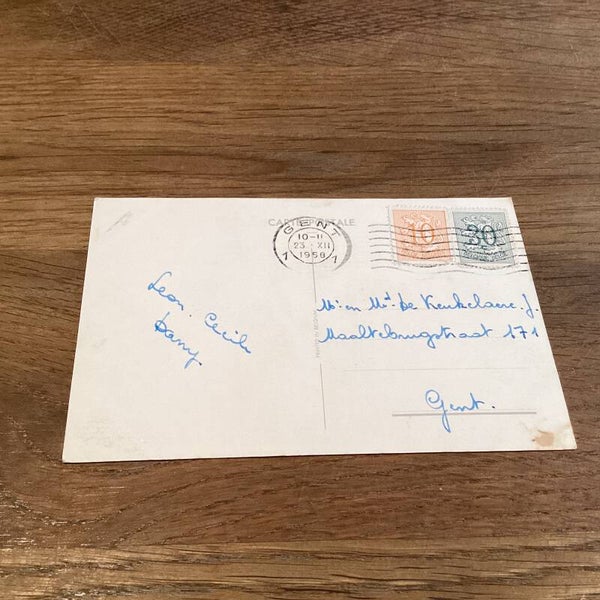 CARTE POSTALE
GENT
10-11
23 XII
1958
1 1
10
30
Leon. Cecile
Danny.
M'r en Md. De Keukelaere. J.
Maaltebrugstraat 171
Gent.